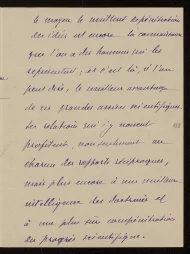 le moyen le meilleur
des idées est encore la connaissance
que l'on a des hommes qui les
représentent ; et c'est là, à l'on
peut dire, le meilleur avantage
de ces grandes assises scientifiques
les relations qui s'y nouent
profitant, non seulement au
charme des rapports réciproques,
mais plus encore à une meilleure
intelligence des doctrines et
à une plus sûre compénétration
des progrès scientifiques.